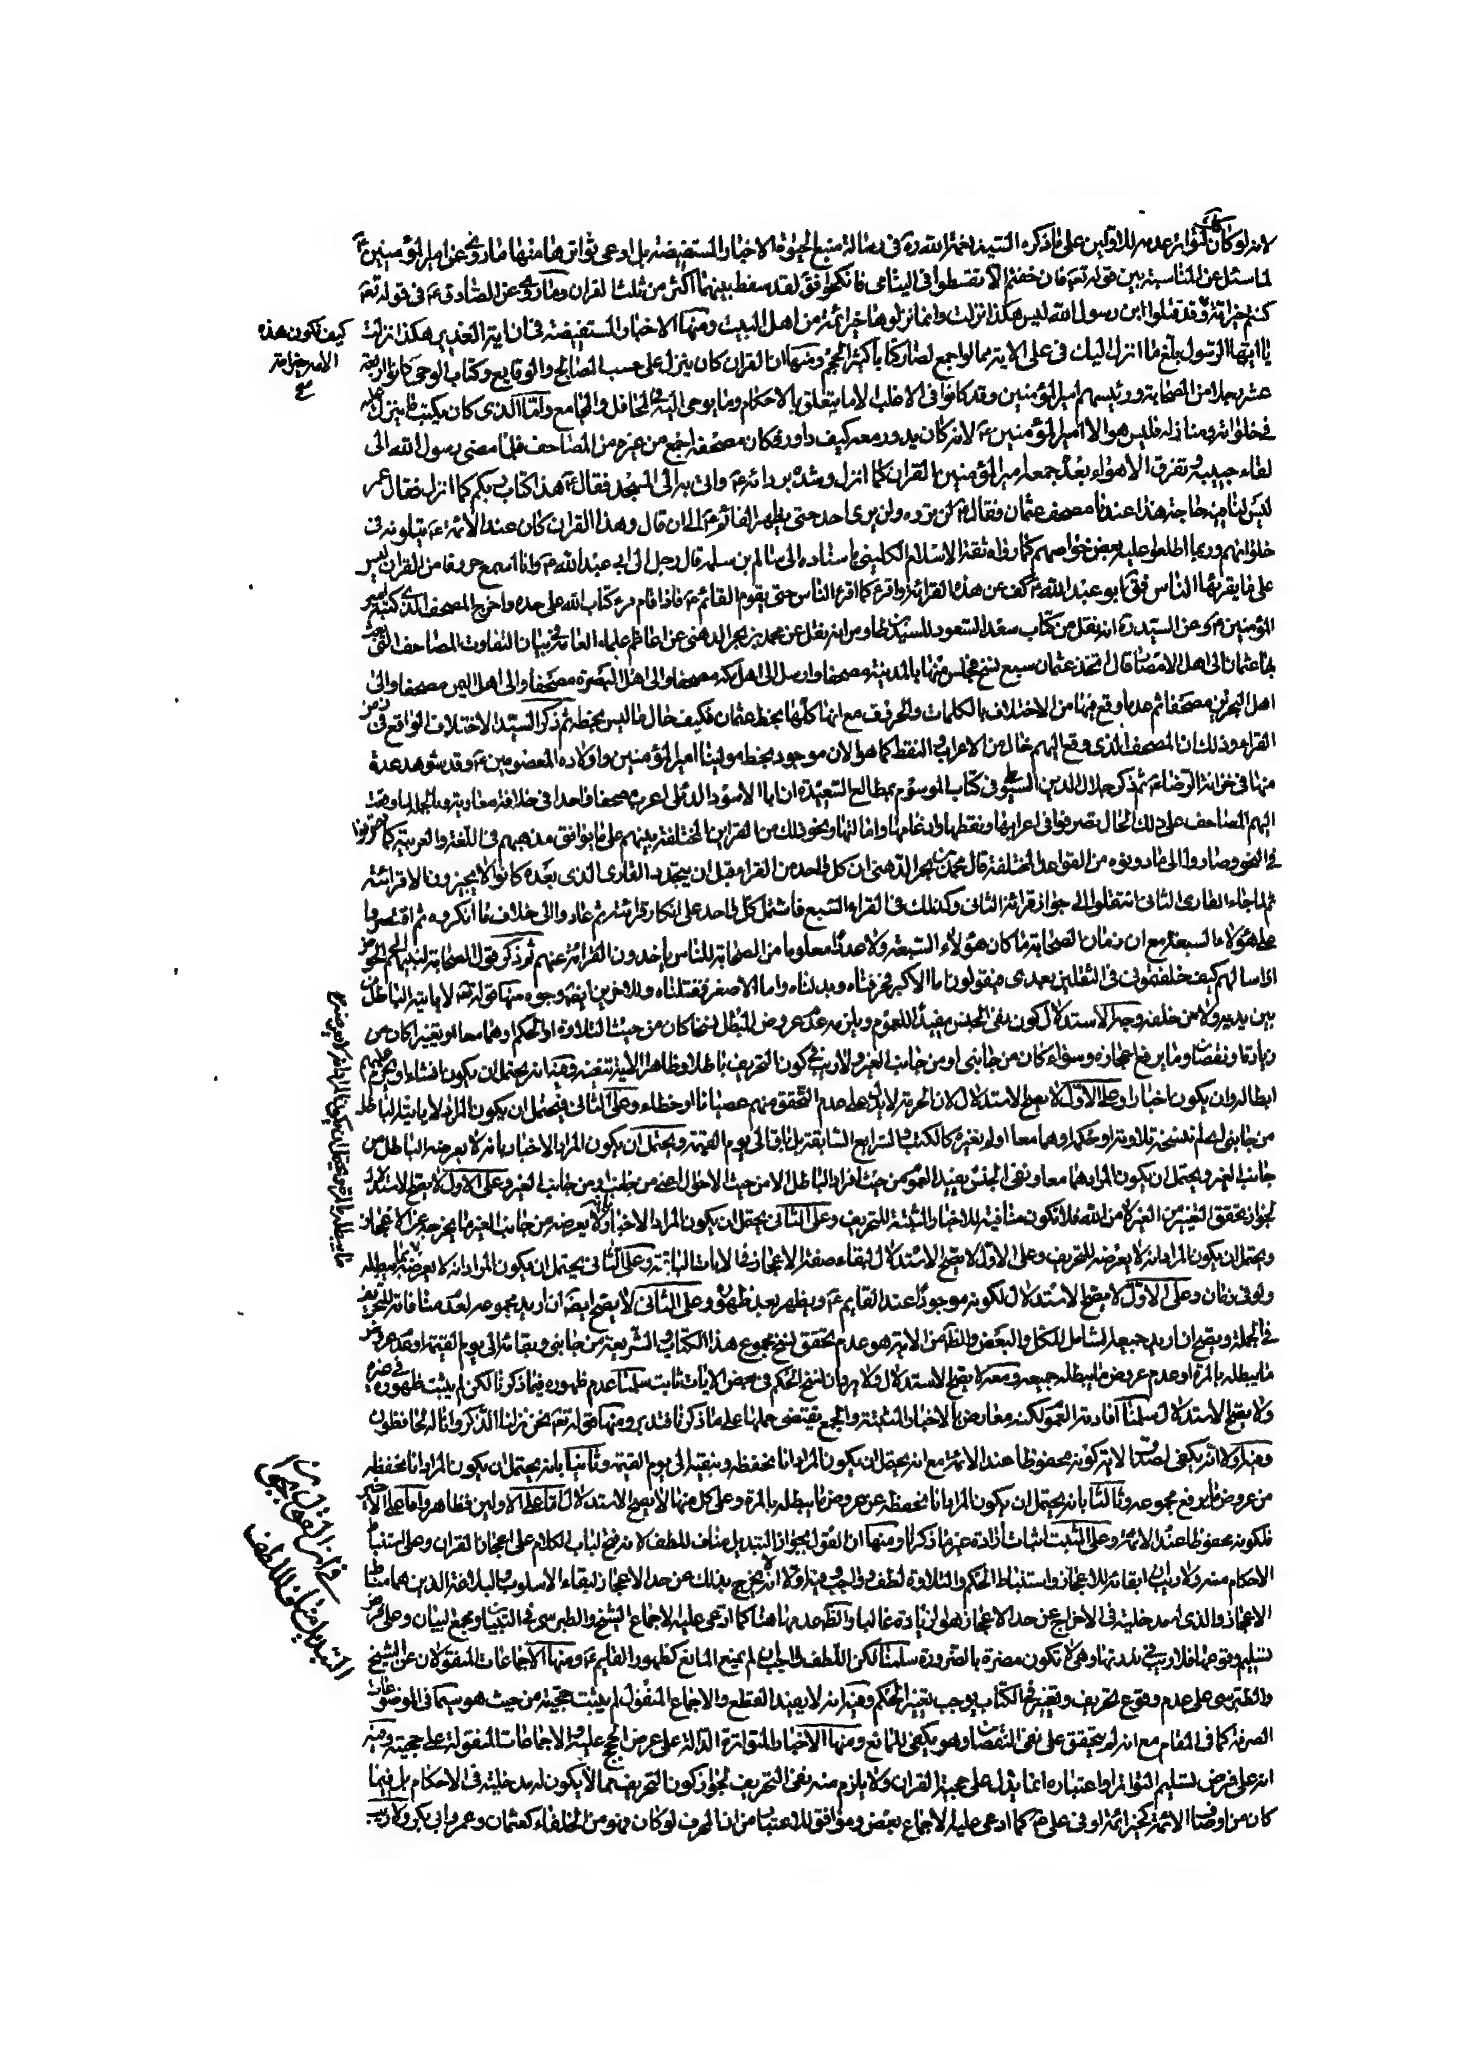 لانه لو كان لتواتر عدمه للاولين على ما ذكره السيد نعمة الله ره في رسالة منبع الحيوة الاخبار المستفيضة بل ادعى تواترها منها ما روى عن امير المؤمنين ع
لما سئل عن المناسبة بين قوله تعه فان خفتم الا تقسطوا في اليتامى فانكحوا فق لقد سقط بينهما اكثر من ثلث القران وما روى عن الصادق ع في قوله تعه
كنتم خير امة وقد قتلوا ابن رسول الله ليس هكذا نزلت وانما نزلوها خير ائمة من اهل البيت ومنها الاخبار المستفيضة في ان اية الغدير هكذا نزلت
كيف تكون هذه
الامة خير امة
يا ايها الرسول بلغ ما انزل اليك في علي الاية مما لو اجمع لصار كتابا كثير الحجم ومنها ان القران كان ينزل على حسب المصالح والوقايع وكتاب الوحي كانوا اربعة
عشر رجلا من الصحابة ورئيسهم امير المؤمنين وقد كانوا في الاغلب لا ما يتعلق بالاحكام وما يوحى اليه في المحافل والمجامع واما الذي كان يكتب ما ينزل عليه
في خلواته ومنازله فليس هو الا امير المؤمنين ع لانه كان يدور معه كيف دار فكان مصحفه اجمع من غيره من المصاحف فلما مضى رسول الله الى
لقاء حبيبه وتفرق الاهواء بعده جمع امير المؤمنين القران كما انزل وشده بردائه ع واتى به الى المسجد فقال ع هذا كتاب ربكم كما انزل فقال عمر
ليس لنا فيه حاجة هذا عندنا مصحف عثمان فقال ع لن تروه ولن يرى احد حتى يظهر القائم ع الى ان قال وهذا القران كان عند الائمة ع يتلونه في
خلواتهم وربما اطلعوا عليه بعض خواصهم كما رواه ثقة الاسلام الكليني باسناده الى سالم بن سلمة قال رجل الى ابي عبد الله ع وانا اسمع حروفا من القران ليس
على ما يقرئها الناس فق ابو عبد الله ع كف عن هذه القرائة واقرء كما اقرء الناس حتى يقوم القائم ع فاذا قام قرء كتاب الله على حده واخرج المصحف الذي كتبه امير
المؤمنين ع وعن السيد ره انه نقل من كتاب سعد السعود للسيد بن طاوس انه نقل عن محمد بن بحر الدهني عن اعاظم علماء العامة في بيان التفاوت المصاحف التي بعث
بها عثمان الى اهل الامصار قال اتخذ عثمان سبع نسخ فحبس منها بالمدينة مصحفا وارسل الى اهل مكة مصحفا والى اهل البصرة مصحفا والى اهل اليمن مصحفا والى
اهل البحرين مصحفا ثم عد ما وقع فيها من الاختلاف بالكلمات والحروف مع انها كلها بخط عثمان فكيف حال ما ليس بخطه ثم ذكر السيد الاختلاف الواقع في
القراء وذلك ان المصحف الذي وقع اليهم خال من الاعراب والنقط كما هو الان موجود بخط مولينا امير المؤمنين واولاده المعصومين ع وقد شوهد عدة
منها في خزانة الرضا ع ثم ذكر جلال الدين السيوطي في كتابه الموسوم بمطالع السعيدة ان ابا الاسود الدئلي اعرب مصحفا واحدا في خلافة معاوية وبالجملة لما وقعت
اليهم المصاحف على ذلك الحال تصرفوا في اعرابها ونقطها وادغامها وامالتها ونحو ذلك من القراين المختلفة بينهم على ما يوافق مذهبهم في اللغة والعربية كما تصرفوا
في النحو وصاروا الى ما دونوه من القواعد المختلفة قال محمد بن بحر الدهني ان كل واحد من القراء قبل ان يتجدد القارى الذي بعده كانوا لا يجيزون الا قرائته
ثم لما جاء القارى الثاني انتقلوا الى جواز قرائة الثاني وكذلك في القراء السبع فاشتمل كل واحد على انكار قرائته ثم عاد والى خلاف ما انكروه ثم اقتصروا
على هؤلاء السبعة مع ان زمان الصحابة ما كان هؤلاء السبعة ولا عددا معلوما من الصحابة للناس ياخذون القرائة عنهم ثم ذكر قول الصحابة لنبيهم على الحوض
اذا سالهم كيف خلفتموني في الثقلين بعدي فيقولون اما الاكبر فحرفناه وبدلناه واما الاصغر فقتلناه وللاخرين ايضا وجوه منها قوله تعه لا ياتيه الباطل من
بين يديه ولا من خلفه وجه الاستدلال كون نفي الجنس مفيدا للعموم ويلزمه عدم عروض المبطل له مما كان من حيث التلاوة او الحكم او هما معا او تغيير اكان من
زيادة او نقصان وما يرفع اعجازه وسواء كان من جانبي او من جانب الغير ولا ريب في كون التحريف باطلا وظاهر الاية تنفيه وفيه انه يحتمل ان يكون انشاء او تحريم عليهم
ابطاله وان يكون اخبارا وعلى الاول لا يصح الاستدلال لان الحرمة لا يدل على عدم التحقق منهم عصيانا او خطاء وعلى الثاني فيحتمل ان يكون المراد لا ياتيه الباطل
من جانبي اى لم ننسخه تلاوة او حكما او هما معا او لم نغيره كالكتب والشرايع السابقة بل باق الى يوم القيمة ويحتمل ان يكون المراد الاخبار بانه لا يعرضه الباطل من
جانب الغير ويحتمل ان يكون المراد هما معا ونفي الجنس يفيد العموم من حيث افراد الباطل لا من حيث الاحوال اعنى من جانبي ومن جانب الغير وعلى الاول لا يصح الاستدلال
لجواز تحقق التغيير من الغير لا من الله فلا تكون منافية للاخبار المثبتة للتحريف وعلى الثاني يحتمل ان يكون المراد الاخبار بانه لا يعرضه من جانب الغير ما يخرجه عن الاعجاز
ويحتمل ان يكون المراد انه لا يعرضه التحريف وعلى الاول لا يصح الاستدلال لبقاء صفة الاعجاز في الايات الباقية وعلى الثاني يحتمل ان يكون المراد انه لا يعرضه ما يبطله
ولو في زمان وعلى الاول لا يصح الاستدلال لكونه موجودا عند القايم ع ويظهر بعد ظهوره وعلى الثاني لا يصح ايضا ان اريد مجموعه لعدم منافاته للتحريف
في الجملة ويصح ان اريد جميعه الشامل للكل والبعض والظ من الاية هو عدم تحقق نسخ مجموع هذا الكتاب والشريعة من جانبي وبقائه الى يوم القيمة او عدم عروض
ما يبطله بالمرة او عدم عروض ما يبطله جميعه ومعه لا يصح الاستدلال ولا يرد ان نسخ الحكم في بعض الايات ثابت سلمنا عدم ظهوره فيما ذكرنا لكن لم يثبت ظهوره في غيره
ولا يصح الاستدلال سلمنا افادته العموم لكنه معارض بالاخبار المثبتة والجمع يقتضى حملها على ما ذكرنا فتدبر ومنها قوله تعه نحن نزلنا الذكر وانا له لحافظون
وفيه اولا انه يكفى لصدق الاية كونه محفوظا عند الائمة مع انه يحتمل ان يكون المراد انا نحفظه ونبقيه الى يوم القيمة وثانيا بانه يحتمل ان يكون المراد انا نحفظه
من عروض ما يرفع مجموعه وثالثا بانه يحتمل ان يكون المراد انا نحفظه عن عروض ما يبطله بالمرة وعلى كل منها لا يصح الاستدلال اما على الاولين فظاهر واما على الاخير
فلكونه محفوظا عند الائمة وعلى المثبت اثبات ارادة غير ما ذكر ومنها ان القول بجواز التبديل مناف للطف لانه فتح لباب الكلام على اعجاز القران وعلى استنباط
الاحكام منه ولا ريب ان ابقائه للاعجاز واستنباط الحكم والتلاوة لطف وواجب وفيه اولا انه لا يخرج بذلك عن حد الاعجاز لبقاء الاسلوب والبلاغة الذين هما مناط
الاعجاز والذى له مدخلية في الاخراج عن حد الاعجاز هو الزيادة غالبا والظ عدمها هنا كما ادعى عليه الاجماع الشيخ والطبرسي في التبيان ومجمع البيان وعلى فرض
تسليم وقوعها فلا ريب في ندرتها وهى لا تكون مضرة بالضرورة سلمنا لكن اللطف واجب ان لم يمنع المانع كظهور القايم ع ومنها الاجماعات المنقولان عن الشيخ
والطبرسي على عدم وقوع التحريف وتغيير في الكتاب يوجب تغيير الحكم وفيه انه لا يفيد القطع والاجماع المنقول لم يثبت حجيته من حيث هو سيما في الموضوعات
الصرفة كما في المقام مع انه لم يتحقق على نفي النقصان وهو يكفى للمانع ومنها الاخبار المتواترة الدالة على عرض الحجج عليه والاجماعات المنقولة على حجيته وفيه
انه على فرض تسليم التواتر واعتباره انما يدل على حجية القران ولا يلزم منه نفي التحريف لجواز كون التحريف مما لا يكون له مدخلية في الاحكام بل فيما
كان من اوصاف الائمة كخير ائمة او في علي ع كما ادعى عليه الاجماع بعض وموافق للاعتبار من ان المحرف لو كان فهو من الخلفاء كعثمان وعمر وابي بكر ولا ريب
ما يبطله بالمرة ويحتمل ان يكون المراد انه لا يعرضه
فى ان القول بجواز
التبديل مناف للطف